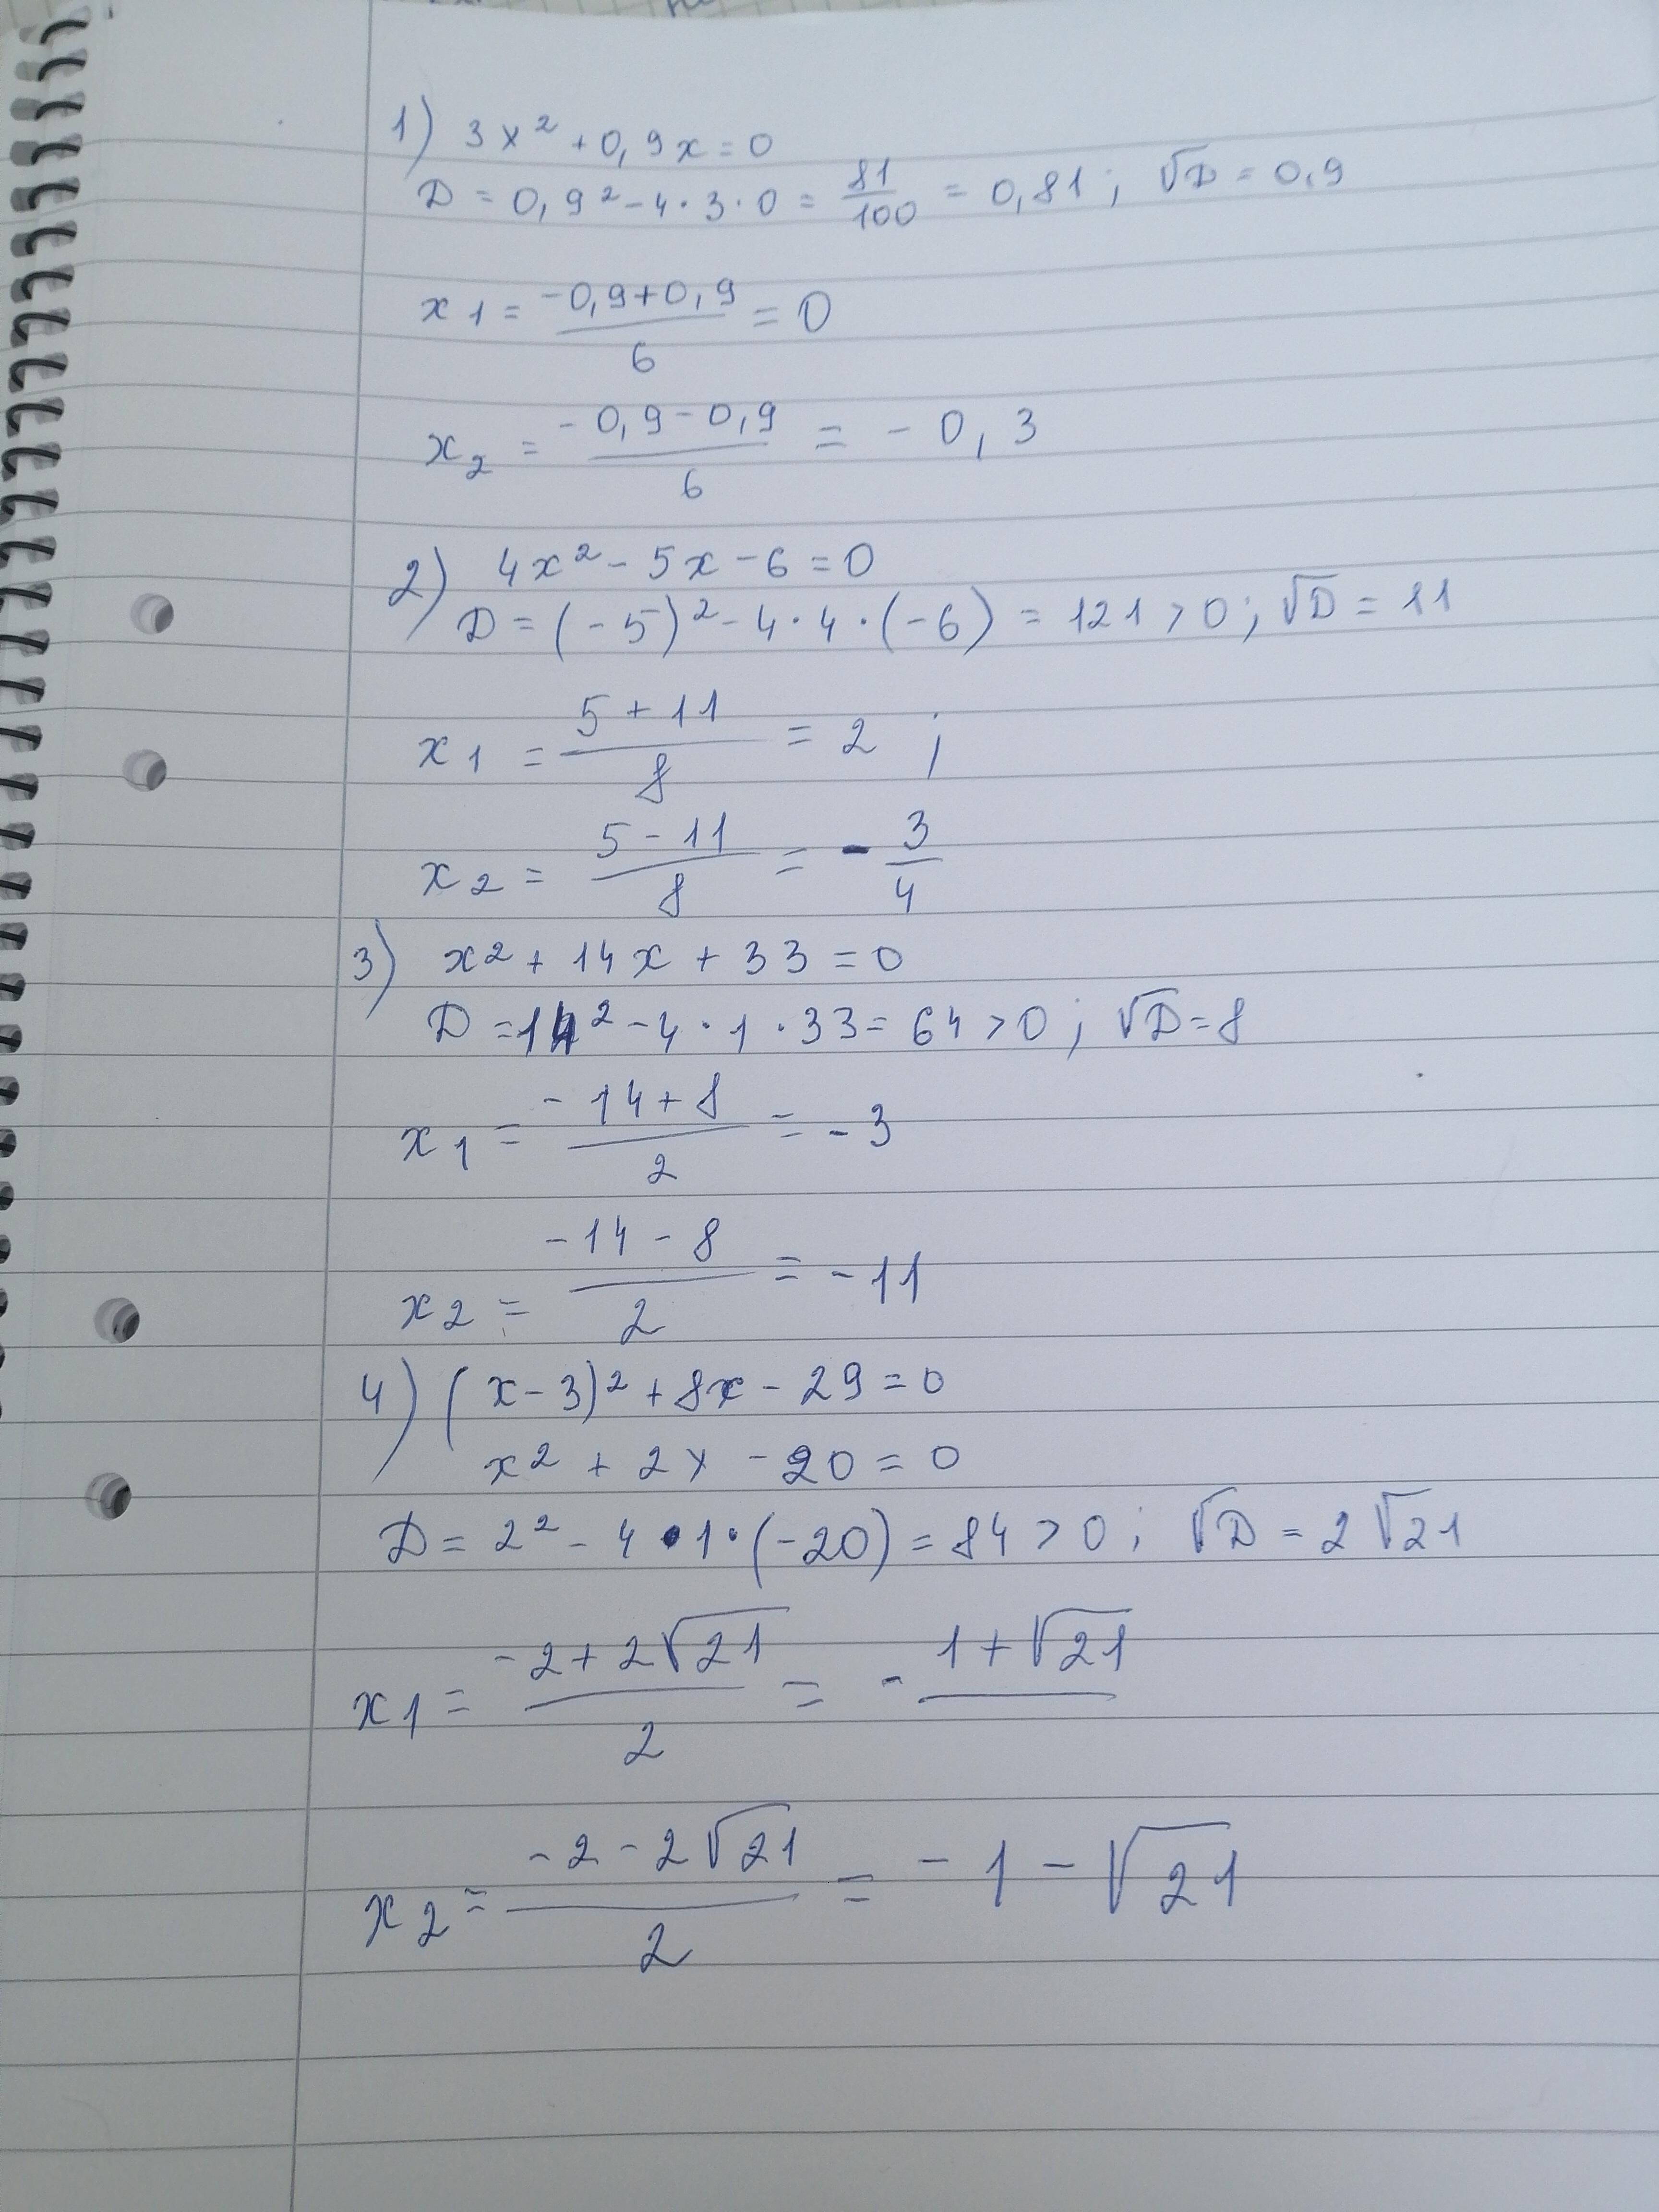 1) 3x² + 0,9x = 0
D = 0,9² - 4 · 3 · 0 = 81/100 = 0,81 ; √D = 0,9
x₁ = (-0,9+0,9)/6 = 0
x₂ = (-0,9-0,9)/6 = -0,3
2) 4x² - 5x - 6 = 0
D = (-5)² - 4 · 4 · (-6) = 121 > 0 ; √D = 11
x₁ = (5 + 11)/8 = 2 ;
x₂ = (5 - 11)/8 = - 3/4
3) x² + 14x + 33 = 0
D = 14² - 4 · 1 · 33 = 64 > 0 ; √D = 8
x₁ = (-14+8)/2 = -3
x₂ = (-14 - 8)/2 = -11
4) (x-3)² + 8x - 29 = 0
x² + 2x - 20 = 0
D = 2² - 4 · 1 · (-20) = 84 > 0 ; √D = 2√21
x₁ = (-2+2√21)/2 = - (1+√21)/
x₂ = (-2-2√21)/2 = -1 - √21